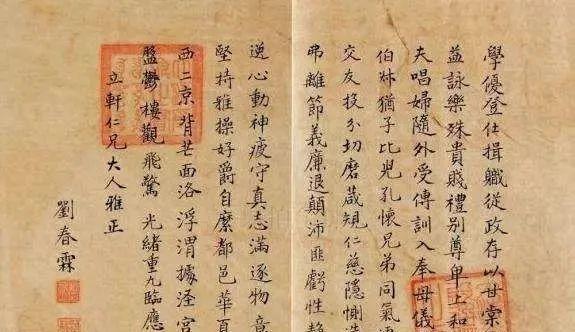 學優登仕揖職從政存以甘棠
益詠樂殊貴賤禮別尊卑上和
夫唱婦隨外受傅訓入奉母儀
伯叔猶子比兒孔懷兄弟同氣
交友投分切磨葴規仁慈隱惻
弗離節義廉退顛沛匪虧性靜
逸心動神疲守真志滿逐物意
堅持雅操好爵自縻都邑華
西二京背芒面洛浮渭據涇宮
盤鬱樓觀飛驚 光緒重九臨應
立軒仁兄大人雅正
劉春霖